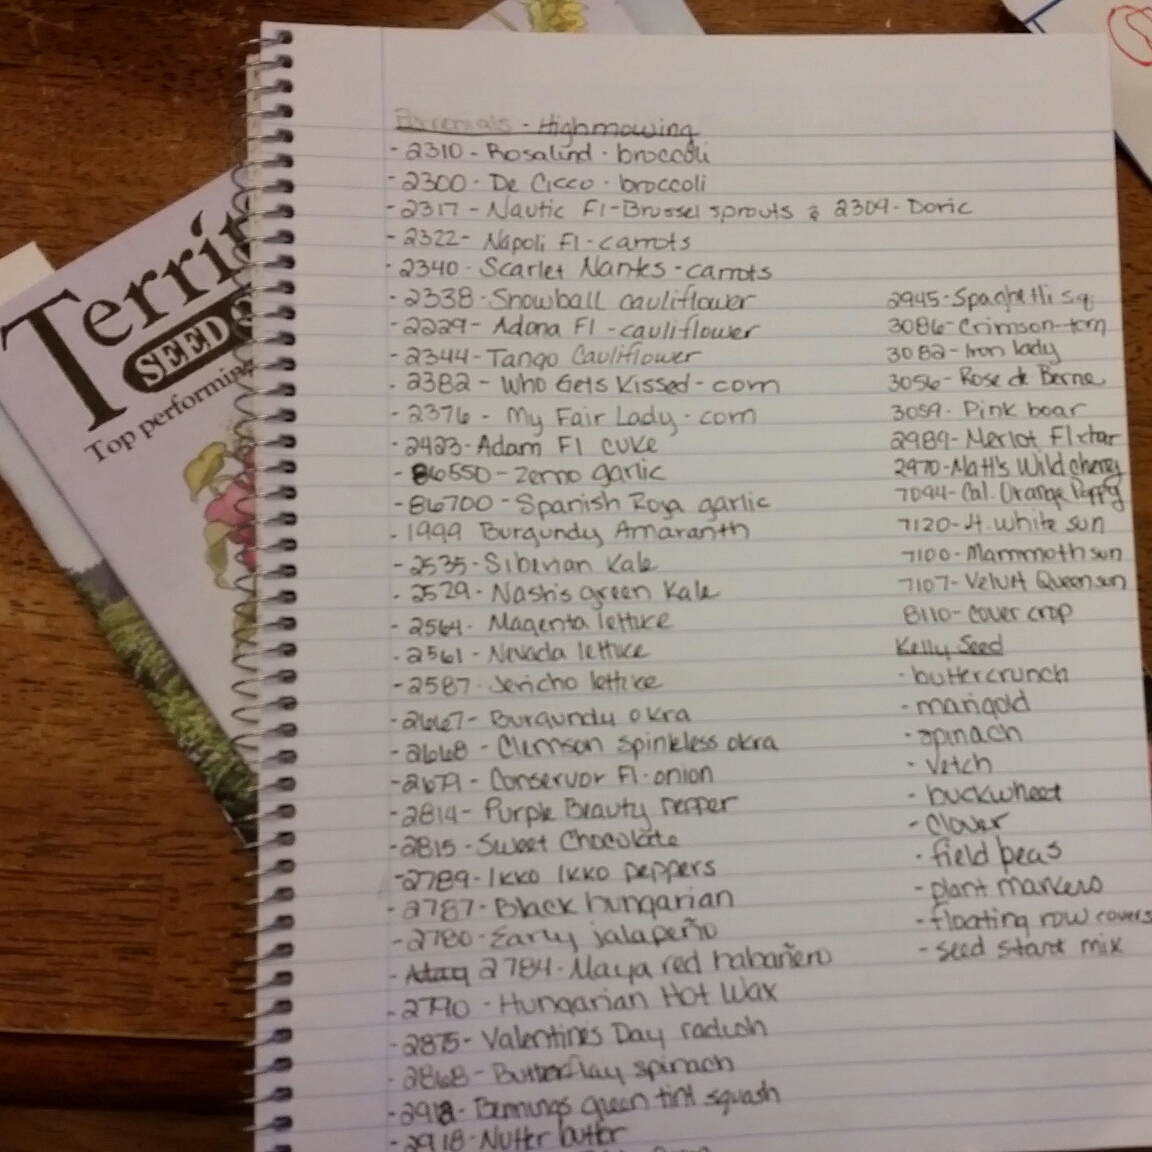 Territ
SEED
Top performing
Perrenials - Highmowing
- 2310 - Rosalind - broccoli
- 2300 - De Cicco - broccoli
- 2317 - Nautic F1 - Brussel sprouts & 2309 - Doric
- 2322 - Napoli F1 - carrots
- 2340 - Scarlet Nantes - carrots
- 2338 - Snowball cauliflower
- 2229 - Adona F1 - cauliflower
- 2344 - Tango Cauliflower
- 2382 - Who Gets Kissed - corn
- 2376 - My Fair Lady - corn
- 2423 - Adam F1 cuke
- 86550 - Zemo garlic
- 86700 - Spanish Roja garlic
- 1999 Burgundy Amaranth
- 2535 - Siberian Kale
- 2529 - Nash's green Kale
- 2564 - Magenta lettuce
- 2561 - Nevada lettuce
- 2587 - Jericho lettuce
- 2667 - Burgundy okra
- 2668 - Clemson spinkless okra
- 2679 - Conservor F1 - onion
- 2814 - Purple Beauty pepper
- 2815 - Sweet Chocolate
- 2789 - Ikko Ikko peppers
- 2787 - Black hungarian
- 2780 - Early jalapeño
- 2784 - Maya red habañero
- 2790 - Hungarian Hot Wax
- 2875 - Valentines Day radish
- 2868 - Butterflay spinach
- Bennings green tint squash
- 2918 - Nutter butter
2945 - Spaghetti sq
3086 - Crimson - tom
3082 - Iron lady
3056 - Rose de Berne
3059 - Pink boar
2989 - Merlot F1 xtar
2970 - Matt's Wild cherry
7094 - Cal. Orange Poppy
7120 - It. white sun
7100 - Mammoth sun
7107 - Velvet Queen sun
8110 - cover crop
Kelly Seed
- buttercrunch
- marigold
- spinach
- vetch
- buckwheat
- clover
- field peas
- plant markers
- floating row covers
- seed start mix